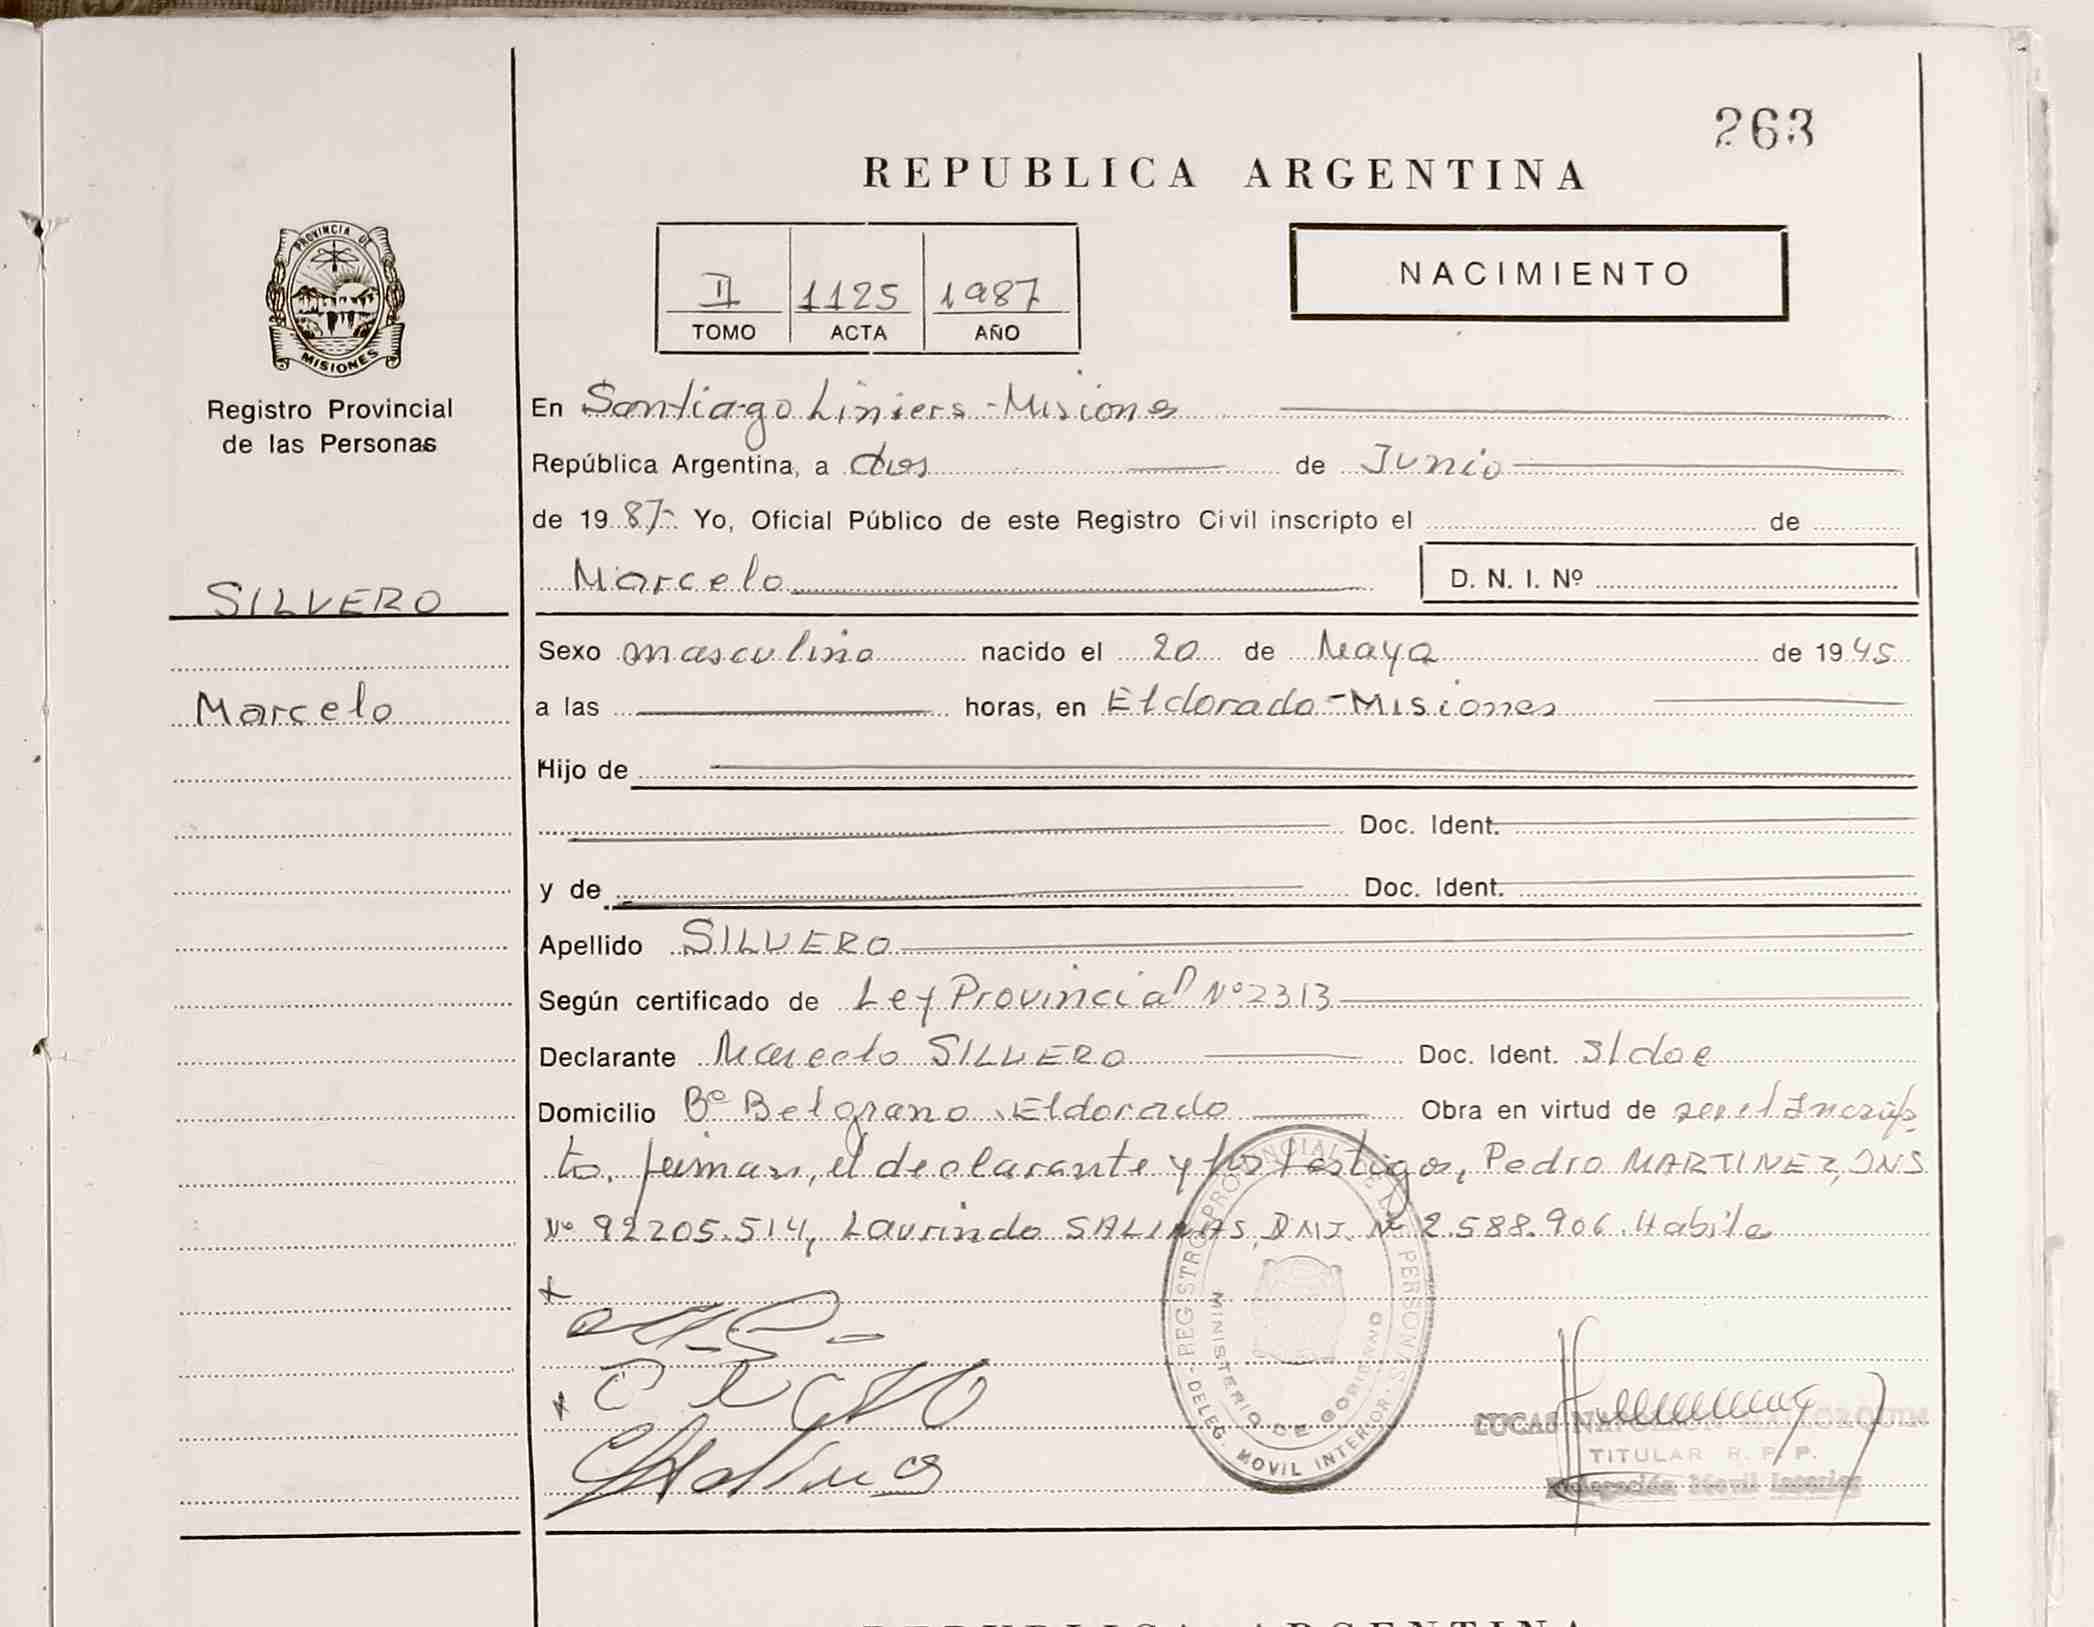 263
REPUBLICA ARGENTINA
PROVINCIA DE
MISIONES
Registro Provincial
de las Personas
II 1125 1987
TOMO ACTA AÑO
NACIMIENTO
En Santiago Liniers - Misiones
República Argentina, a dos de Junio
de 1987 Yo, Oficial Público de este Registro Civil inscripto el de
Marcelo D. N. I. Nº
SILVERO
Sexo masculino nacido el 20 de Mayo de 1945
Marcelo
a las horas, en Eldorado - Misiones
Hijo de
Doc. Ident.
y de Doc. Ident.
Apellido SILVERO
Según certificado de Ley Provincial Nº 2313
Declarante Marcelo SILVERO Doc. Ident. S/doc
Domicilio Bº Belgrano Eldorado Obra en virtud de ser el Inscrip
to, firman, el declarante y los testigos, Pedro MARTINEZ, DNI
Nº 92205.514, Laurindo SALINAS, DNI. Nº 2.588.906. Habiles
REGISTRO PROVINCIAL DE LAS PERSONAS
MINISTERIO DE GOBIERNO
DELEG. MOVIL INTERIOR
LUCAS
TITULAR R. P. P.
Delegación Movil Interior
REPUBLICA ARGENTINA